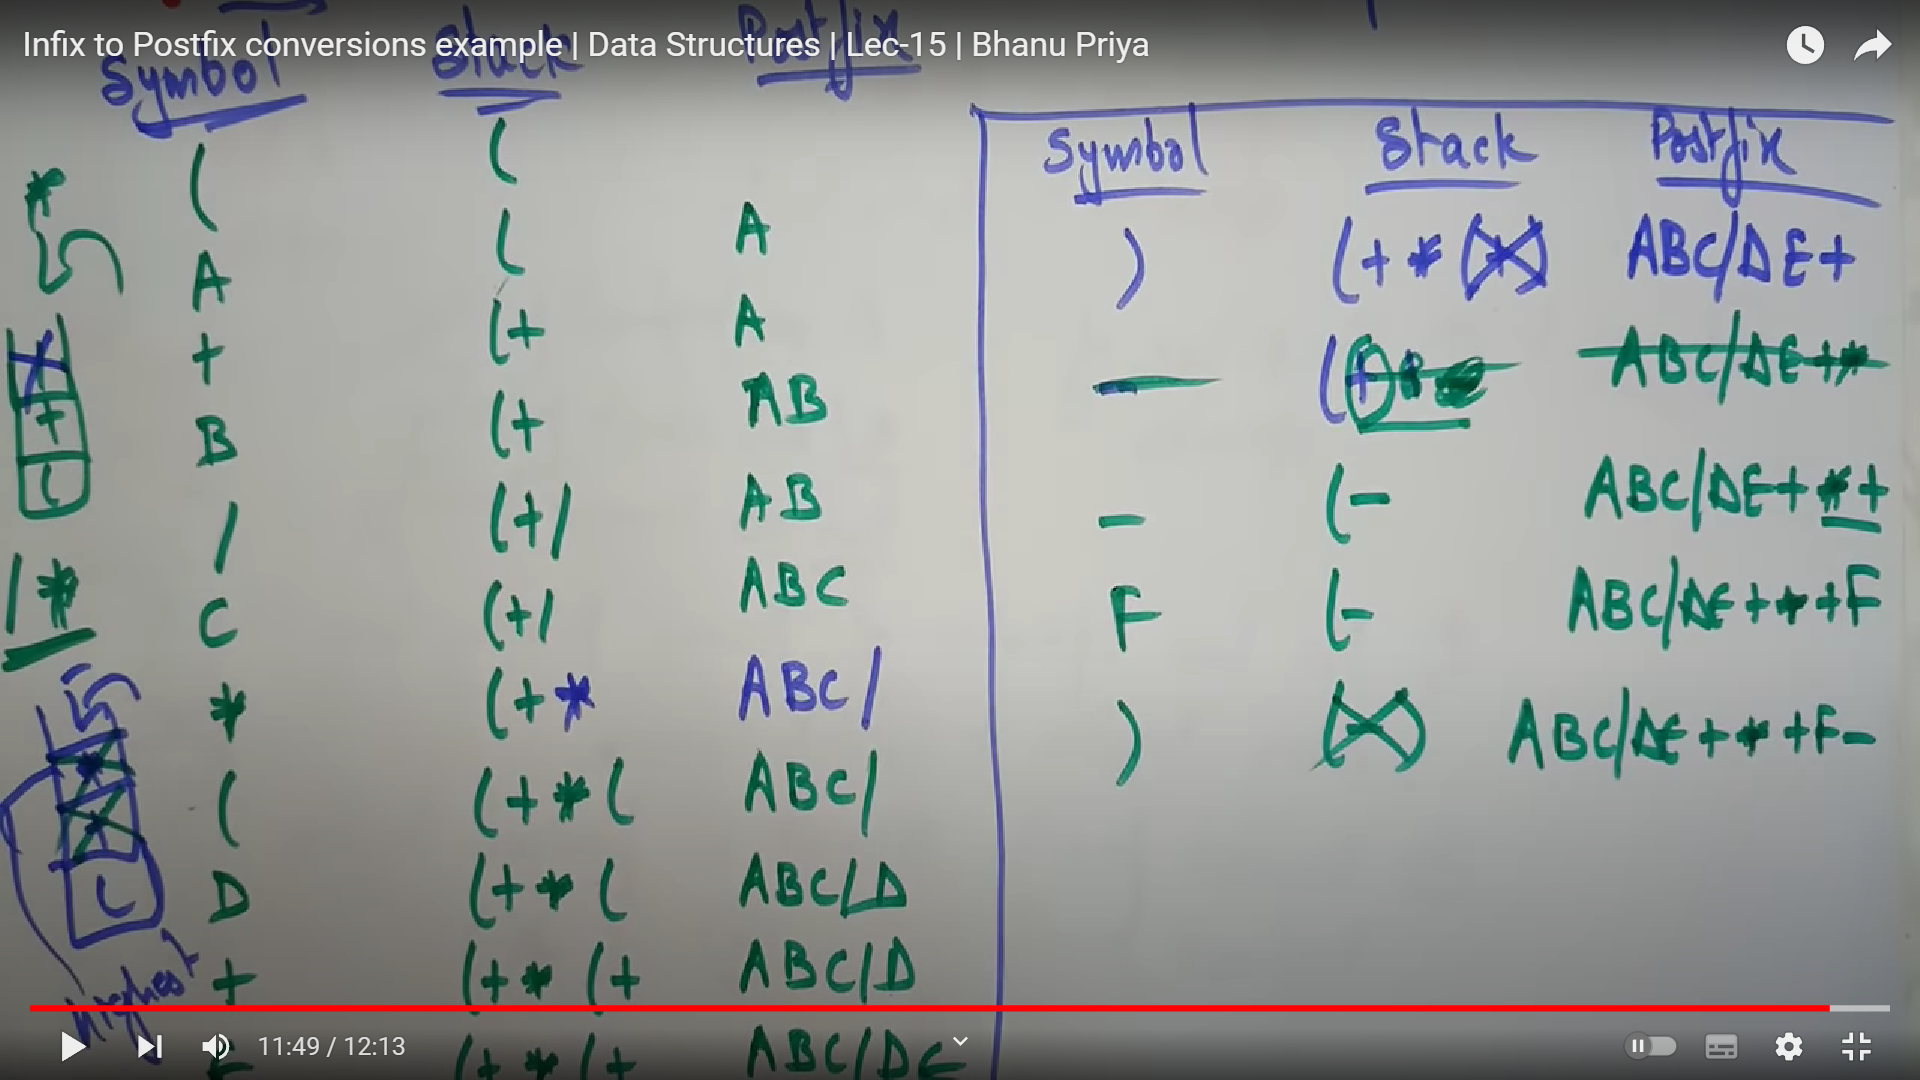 Infix to Postfix conversions example | Data Structures | Lec-15 | Bhanu Priya
Symbol Stack Postfix
( (
A ( A
+ (+ A
B (+ AB
/ (+/ AB
C (+/ ABC
* (+* ABC/
( (+*( ABC/
D (+*( ABC/D
+ (+*(+ ABC/D
E (+*(+ ABC/DE
*
+
(
/*
(
highest
Symbol Stack Postfix
) (+*(+) ABC/DE+
- (+* ABC/DE+*
- (- ABC/DE+*+
F (- ABC/DE+*+F
) (-) ABC/DE+*+F-
11:49 / 12:13